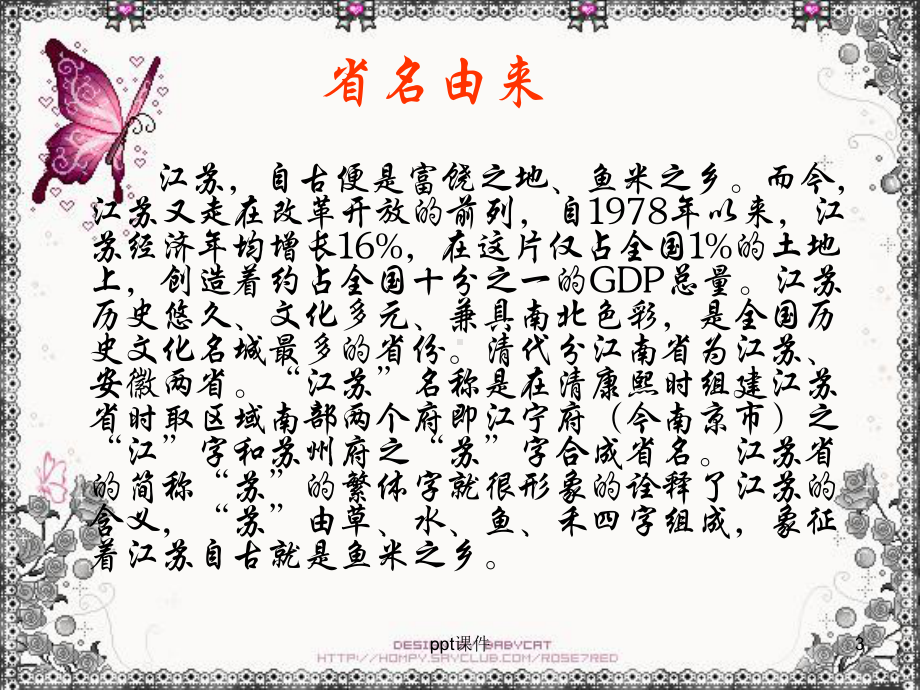 省名由来
江苏，自古便是富饶之地、鱼米之乡。而今，
江苏又走在改革开放的前列，自1978年以来，江
苏经济年均增长16%，在这片仅占全国1%的土地
上，创造着约占全国十分之一的GDP总量。江苏
历史悠久、文化多元、兼具南北色彩，是全国历
史文化名城最多的省份。清代分江南省为江苏、
安徽两省。“江苏”名称是在清康熙时组建江苏
省时取区域南部两个府即江宁府（今南京市）之
“江”字和苏州府之“苏”字合成省名。江苏省
的简称“苏”的繁体字就很形象的诠释了江苏的
含义，“苏”由草、水、鱼、禾四字组成，象征
着江苏自古就是鱼米之乡。
ppt课件
3
HTTP://HOMPY.SAYCLUB.COM/ROSE7RED